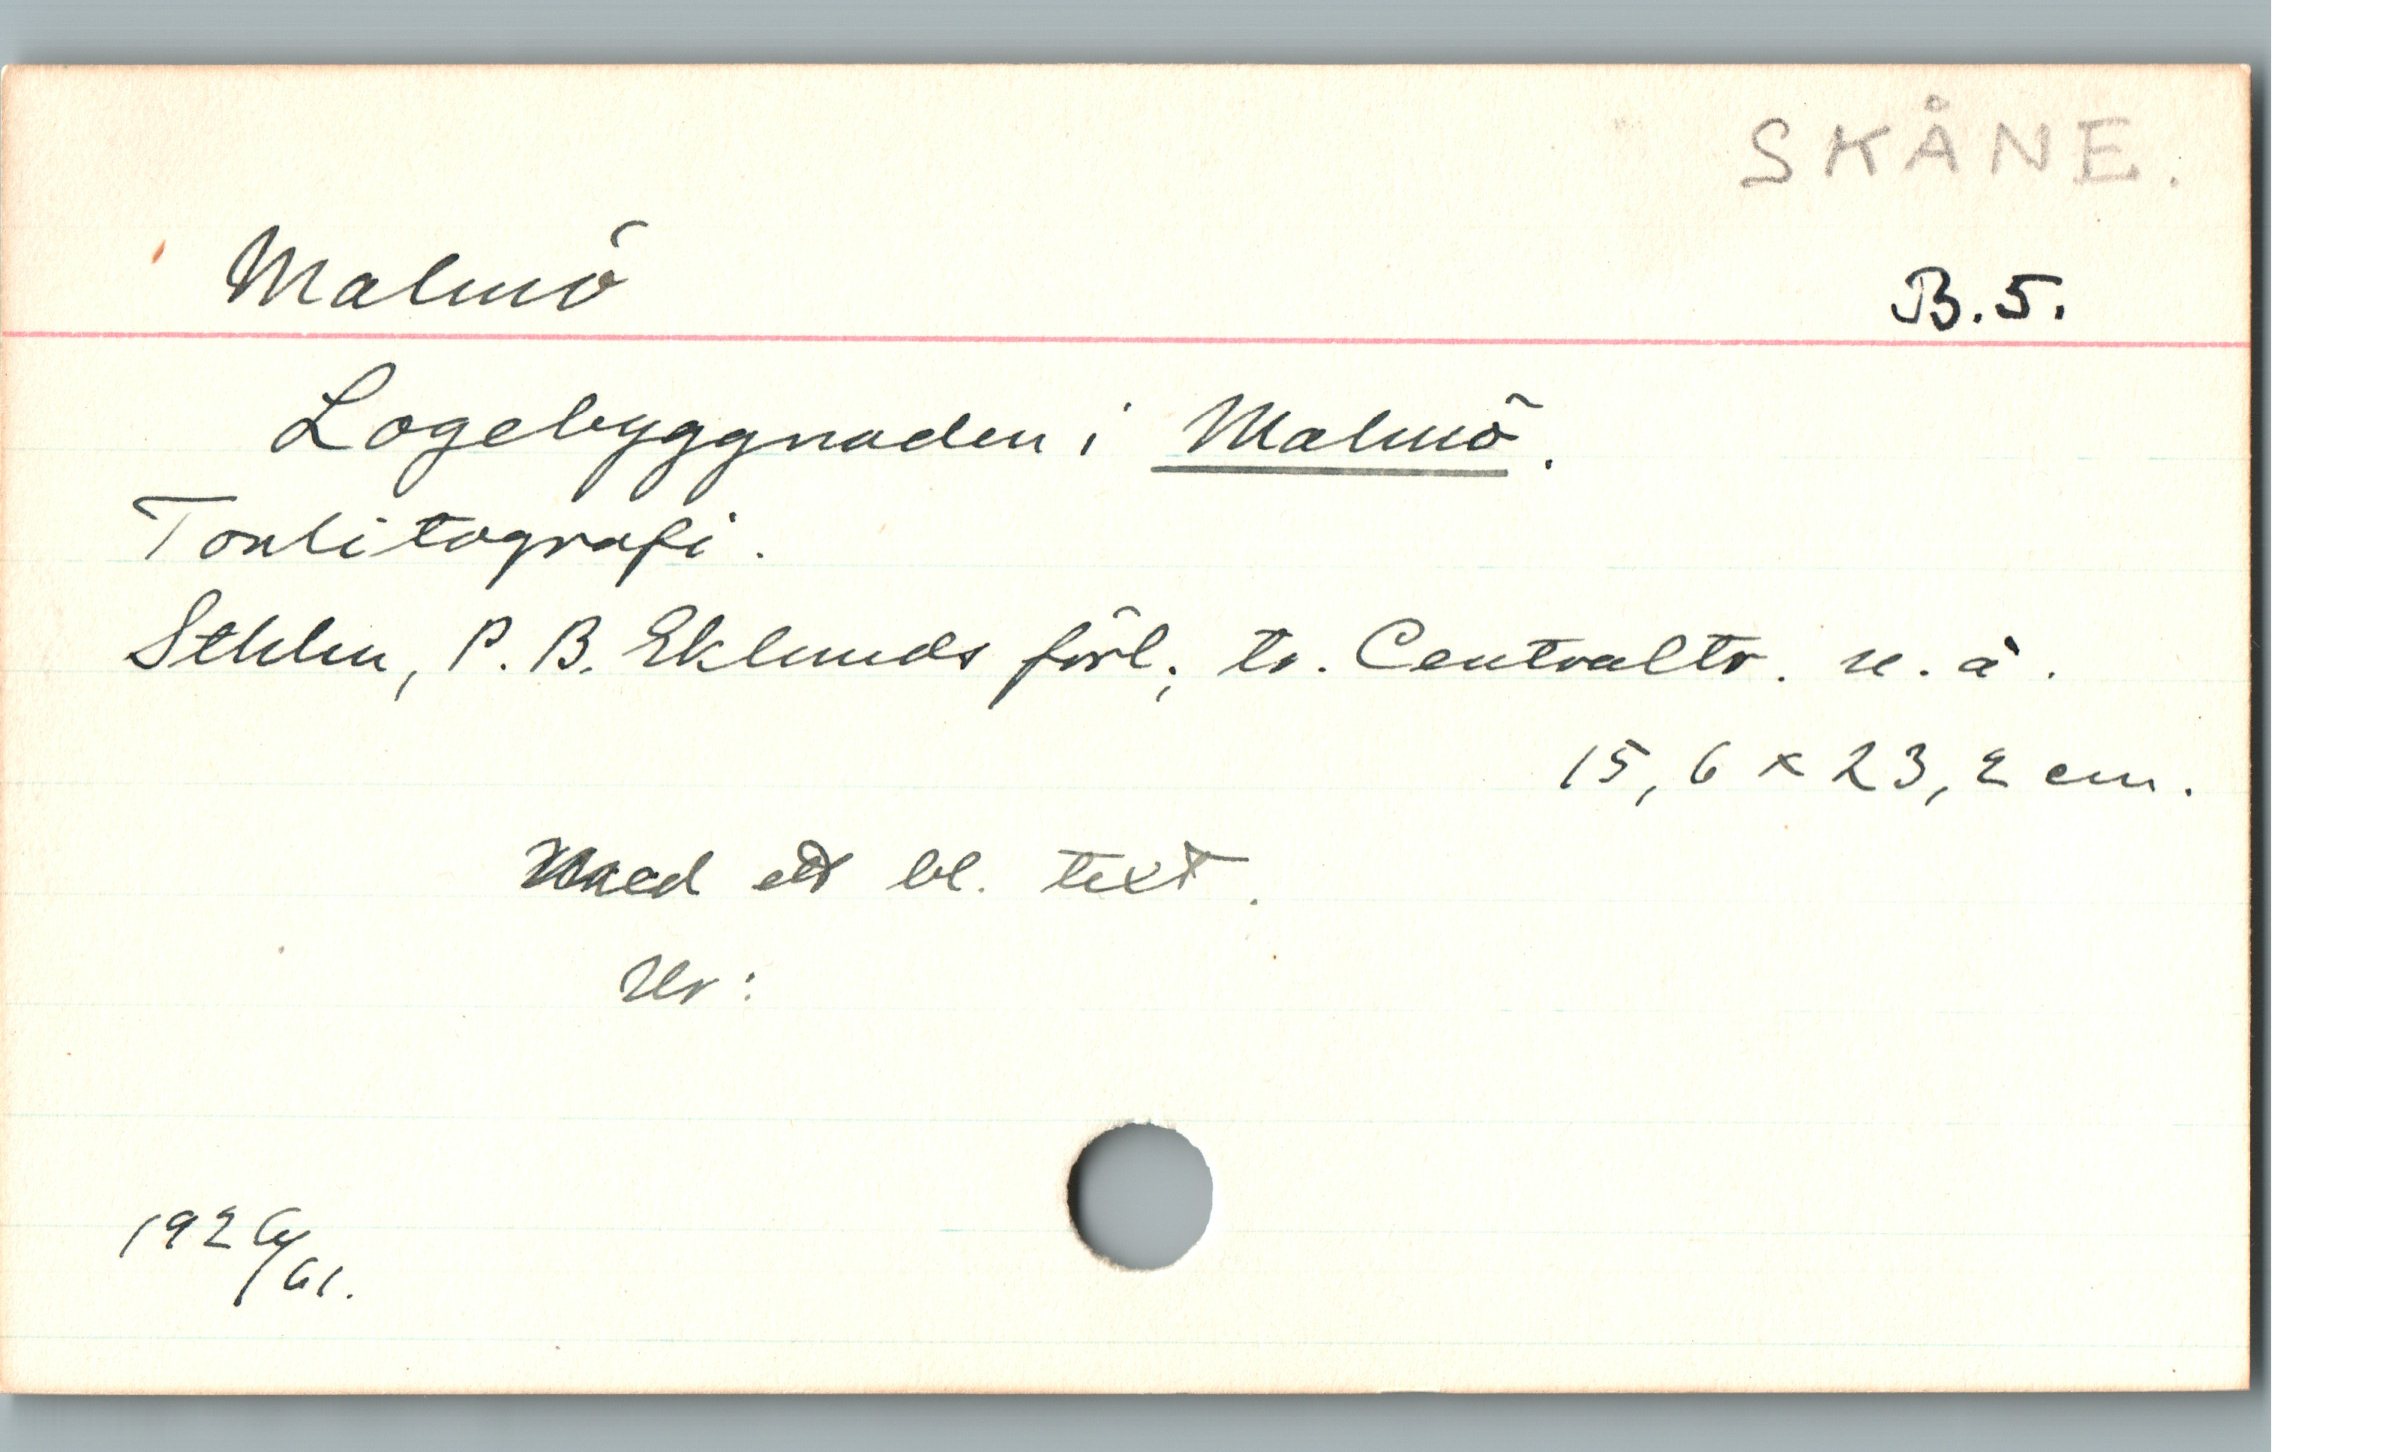 SKÅNE.
Malmö B.5.
Logebyggnaden i Malmö.
Tonlitografi.
Sthlm, P. B. Eklunds förl; tr. Centraltr. u. å.
15,6 x 23,2 cm.
Med ett bl. text.
Ur:
1926/61.